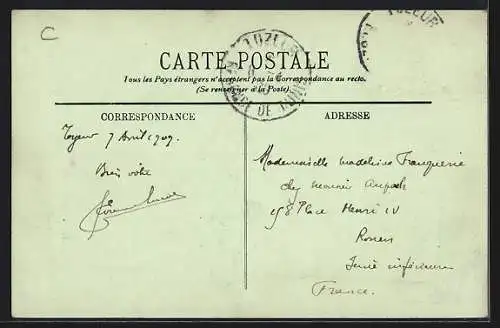 C
TOZEUR
TOZEUR
CARTE POSTALE
Tous les Pays étrangers n'acceptent pas la Correspondance au recto.
(Se renseigner à la Poste).
CORRESPONDANCE
ADRESSE
Tozeur 7 Avril 1909.
Bien vôtre
Mademoiselle Madeleine
chez monsieur
58 Place Henri IV
Rouen
Seine inférieure
France.